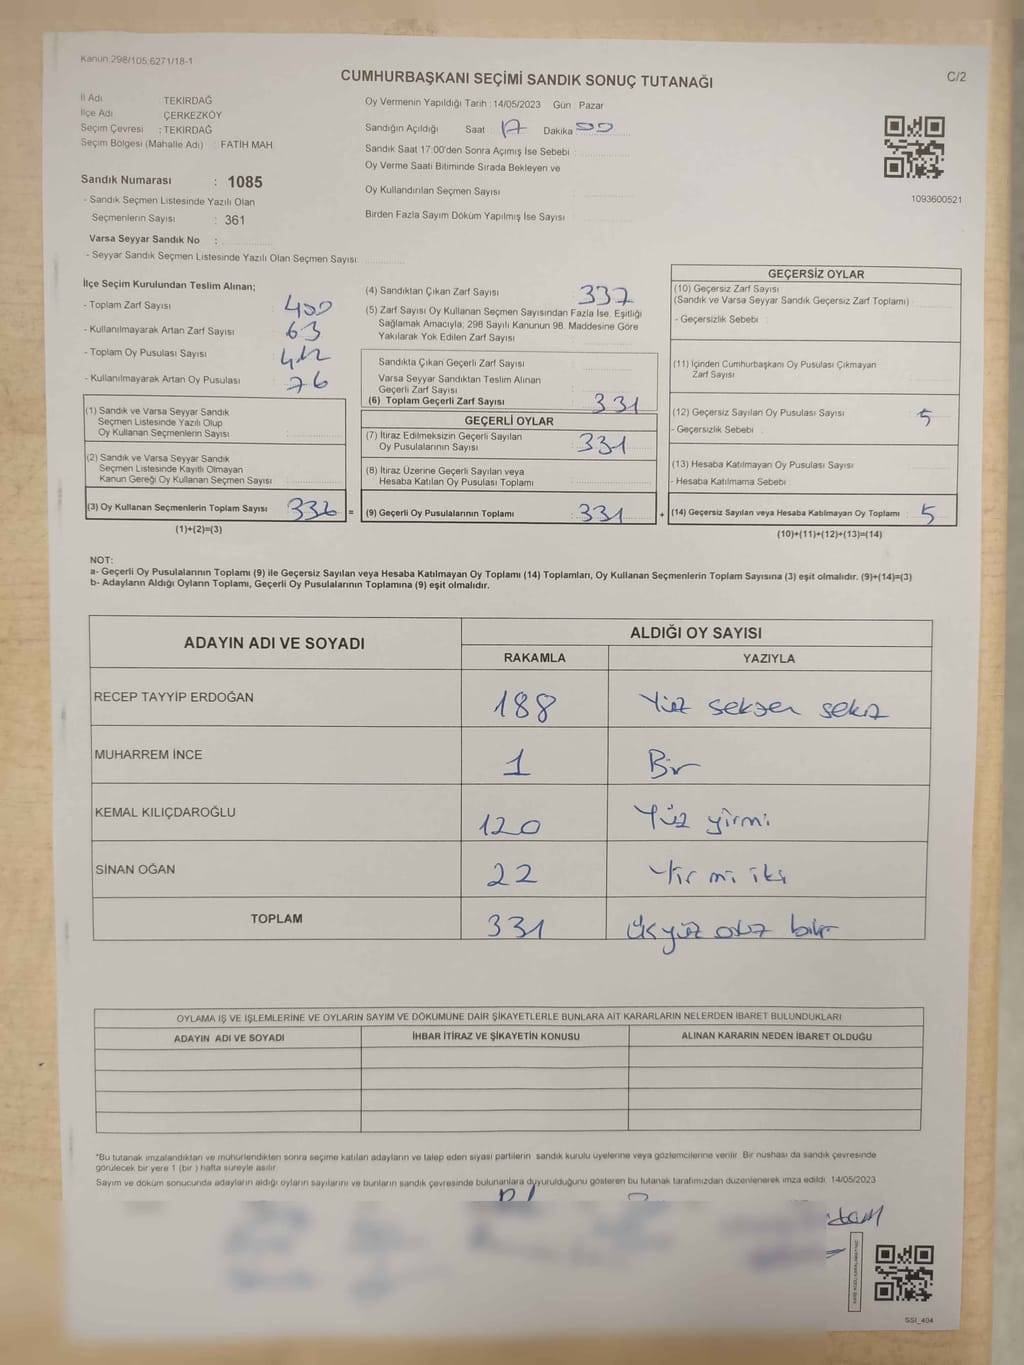 Kanun.298/105,6271/18-1
CUMHURBAŞKANI SEÇİMİ SANDIK SONUÇ TUTANAĞI
C/2
İl Adı : TEKİRDAĞ
İlçe Adı : ÇERKEZKÖY
Seçim Çevresi : TEKİRDAĞ
Seçim Bölgesi (Mahalle Adı) : FATİH MAH.
Sandık Numarası : 1085
- Sandık Seçmen Listesinde Yazılı Olan
Seçmenlerin Sayısı : 361
Varsa Seyyar Sandık No :
- Seyyar Sandık Seçmen Listesinde Yazılı Olan Seçmen Sayısı:
Oy Vermenin Yapıldığı Tarih : 14/05/2023 Gün : Pazar
Sandığın Açıldığı Saat : 17 Dakika : 00
Sandık Saat 17:00'den Sonra Açımış İse Sebebi :
Oy Verme Saati Bitiminde Sırada Bekleyen ve
Oy Kullandırılan Seçmen Sayısı :
Birden Fazla Sayım Döküm Yapılmış İse Sayısı :
1093600521
İlçe Seçim Kurulundan Teslim Alınan;
- Toplam Zarf Sayısı : 400
- Kullanılmayarak Artan Zarf Sayısı : 63
- Toplam Oy Pusulası Sayısı : 412
- Kullanılmayarak Artan Oy Pusulası : 76
(1) Sandık ve Varsa Seyyar Sandık
Seçmen Listesinde Yazılı Olup
Oy Kullanan Seçmenlerin Sayısı :
(2) Sandık ve Varsa Seyyar Sandık
Seçmen Listesinde Kayıtlı Olmayan
Kanun Gereği Oy Kullanan Seçmen Sayısı :
(3) Oy Kullanan Seçmenlerin Toplam Sayısı : 336 =
(1)+(2)=(3)
(4) Sandıktan Çıkan Zarf Sayısı : 337
(5) Zarf Sayısı Oy Kullanan Seçmen Sayısından Fazla İse, Eşitliği
Sağlamak Amacıyla; 298 Sayılı Kanunun 98. Maddesine Göre
Yakılarak Yok Edilen Zarf Sayısı :
Sandıkta Çıkan Geçerli Zarf Sayısı :
Varsa Seyyar Sandıktan Teslim Alınan
Geçerli Zarf Sayısı :
(6) Toplam Geçerli Zarf Sayısı : 331
GEÇERLİ OYLAR
(7) İtiraz Edilmeksizin Geçerli Sayılan
Oy Pusulalarının Sayısı : 331
(8) İtiraz Üzerine Geçerli Sayılan veya
Hesaba Katılan Oy Pusulası Toplamı :
(9) Geçerli Oy Pusulalarının Toplamı : 331 +
GEÇERSİZ OYLAR
(10) Geçersiz Zarf Sayısı
(Sandık ve Varsa Seyyar Sandık Geçersiz Zarf Toplamı) :
- Geçersizlik Sebebi :
(11) İçinden Cumhurbaşkanı Oy Pusulası Çıkmayan
Zarf Sayısı :
(12) Geçersiz Sayılan Oy Pusulası Sayısı : 5
- Geçersizlik Sebebi :
(13) Hesaba Katılmayan Oy Pusulası Sayısı :
- Hesaba Katılmama Sebebi :
(14) Geçersiz Sayılan veya Hesaba Katılmayan Oy Toplamı : 5
(10)+(11)+(12)+(13)=(14)
NOT:
a- Geçerli Oy Pusulalarının Toplamı (9) ile Geçersiz Sayılan veya Hesaba Katılmayan Oy Toplamı (14) Toplamları, Oy Kullanan Seçmenlerin Toplam Sayısına (3) eşit olmalıdır. (9)+(14)=(3)
b- Adayların Aldığı Oyların Toplamı, Geçerli Oy Pusulalarının Toplamına (9) eşit olmalıdır.
ADAYIN ADI VE SOYADI
ALDIĞI OY SAYISI
RAKAMLA YAZIYLA
RECEP TAYYİP ERDOĞAN 188 Yüz seksen sekiz
MUHARREM İNCE 1 Bir
KEMAL KILIÇDAROĞLU 120 Yüz yirmi
SİNAN OĞAN 22 Yirmi iki
TOPLAM 331
OYLAMA İŞ VE İŞLEMLERİNE VE OYLARIN SAYIM VE DÖKÜMÜNE DAİR ŞİKAYETLERLE BUNLARA AİT KARARLARIN NELERDEN İBARET BULUNDUKLARI
ADAYIN ADI VE SOYADI İHBAR İTİRAZ VE ŞİKAYETİN KONUSU ALINAN KARARIN NEDEN İBARET OLDUĞU
*Bu tutanak imzalandıktan ve mühürlendikten sonra seçime katılan adayların ve talep eden siyasi partilerin sandık kurulu üyelerine veya gözlemcilerine verilir. Bir nüshası da sandık çevresinde
görülecek bir yere 1 (bir ) hafta süreyle asılır.
Sayım ve döküm sonucunda adayların aldığı oyların sayılarını ve bunların sandık çevresinde bulunanlara duyurulduğunu gösteren bu tutanak tarafımızdan düzenlenerek imza edildi. 14/05/2023
SSI_404